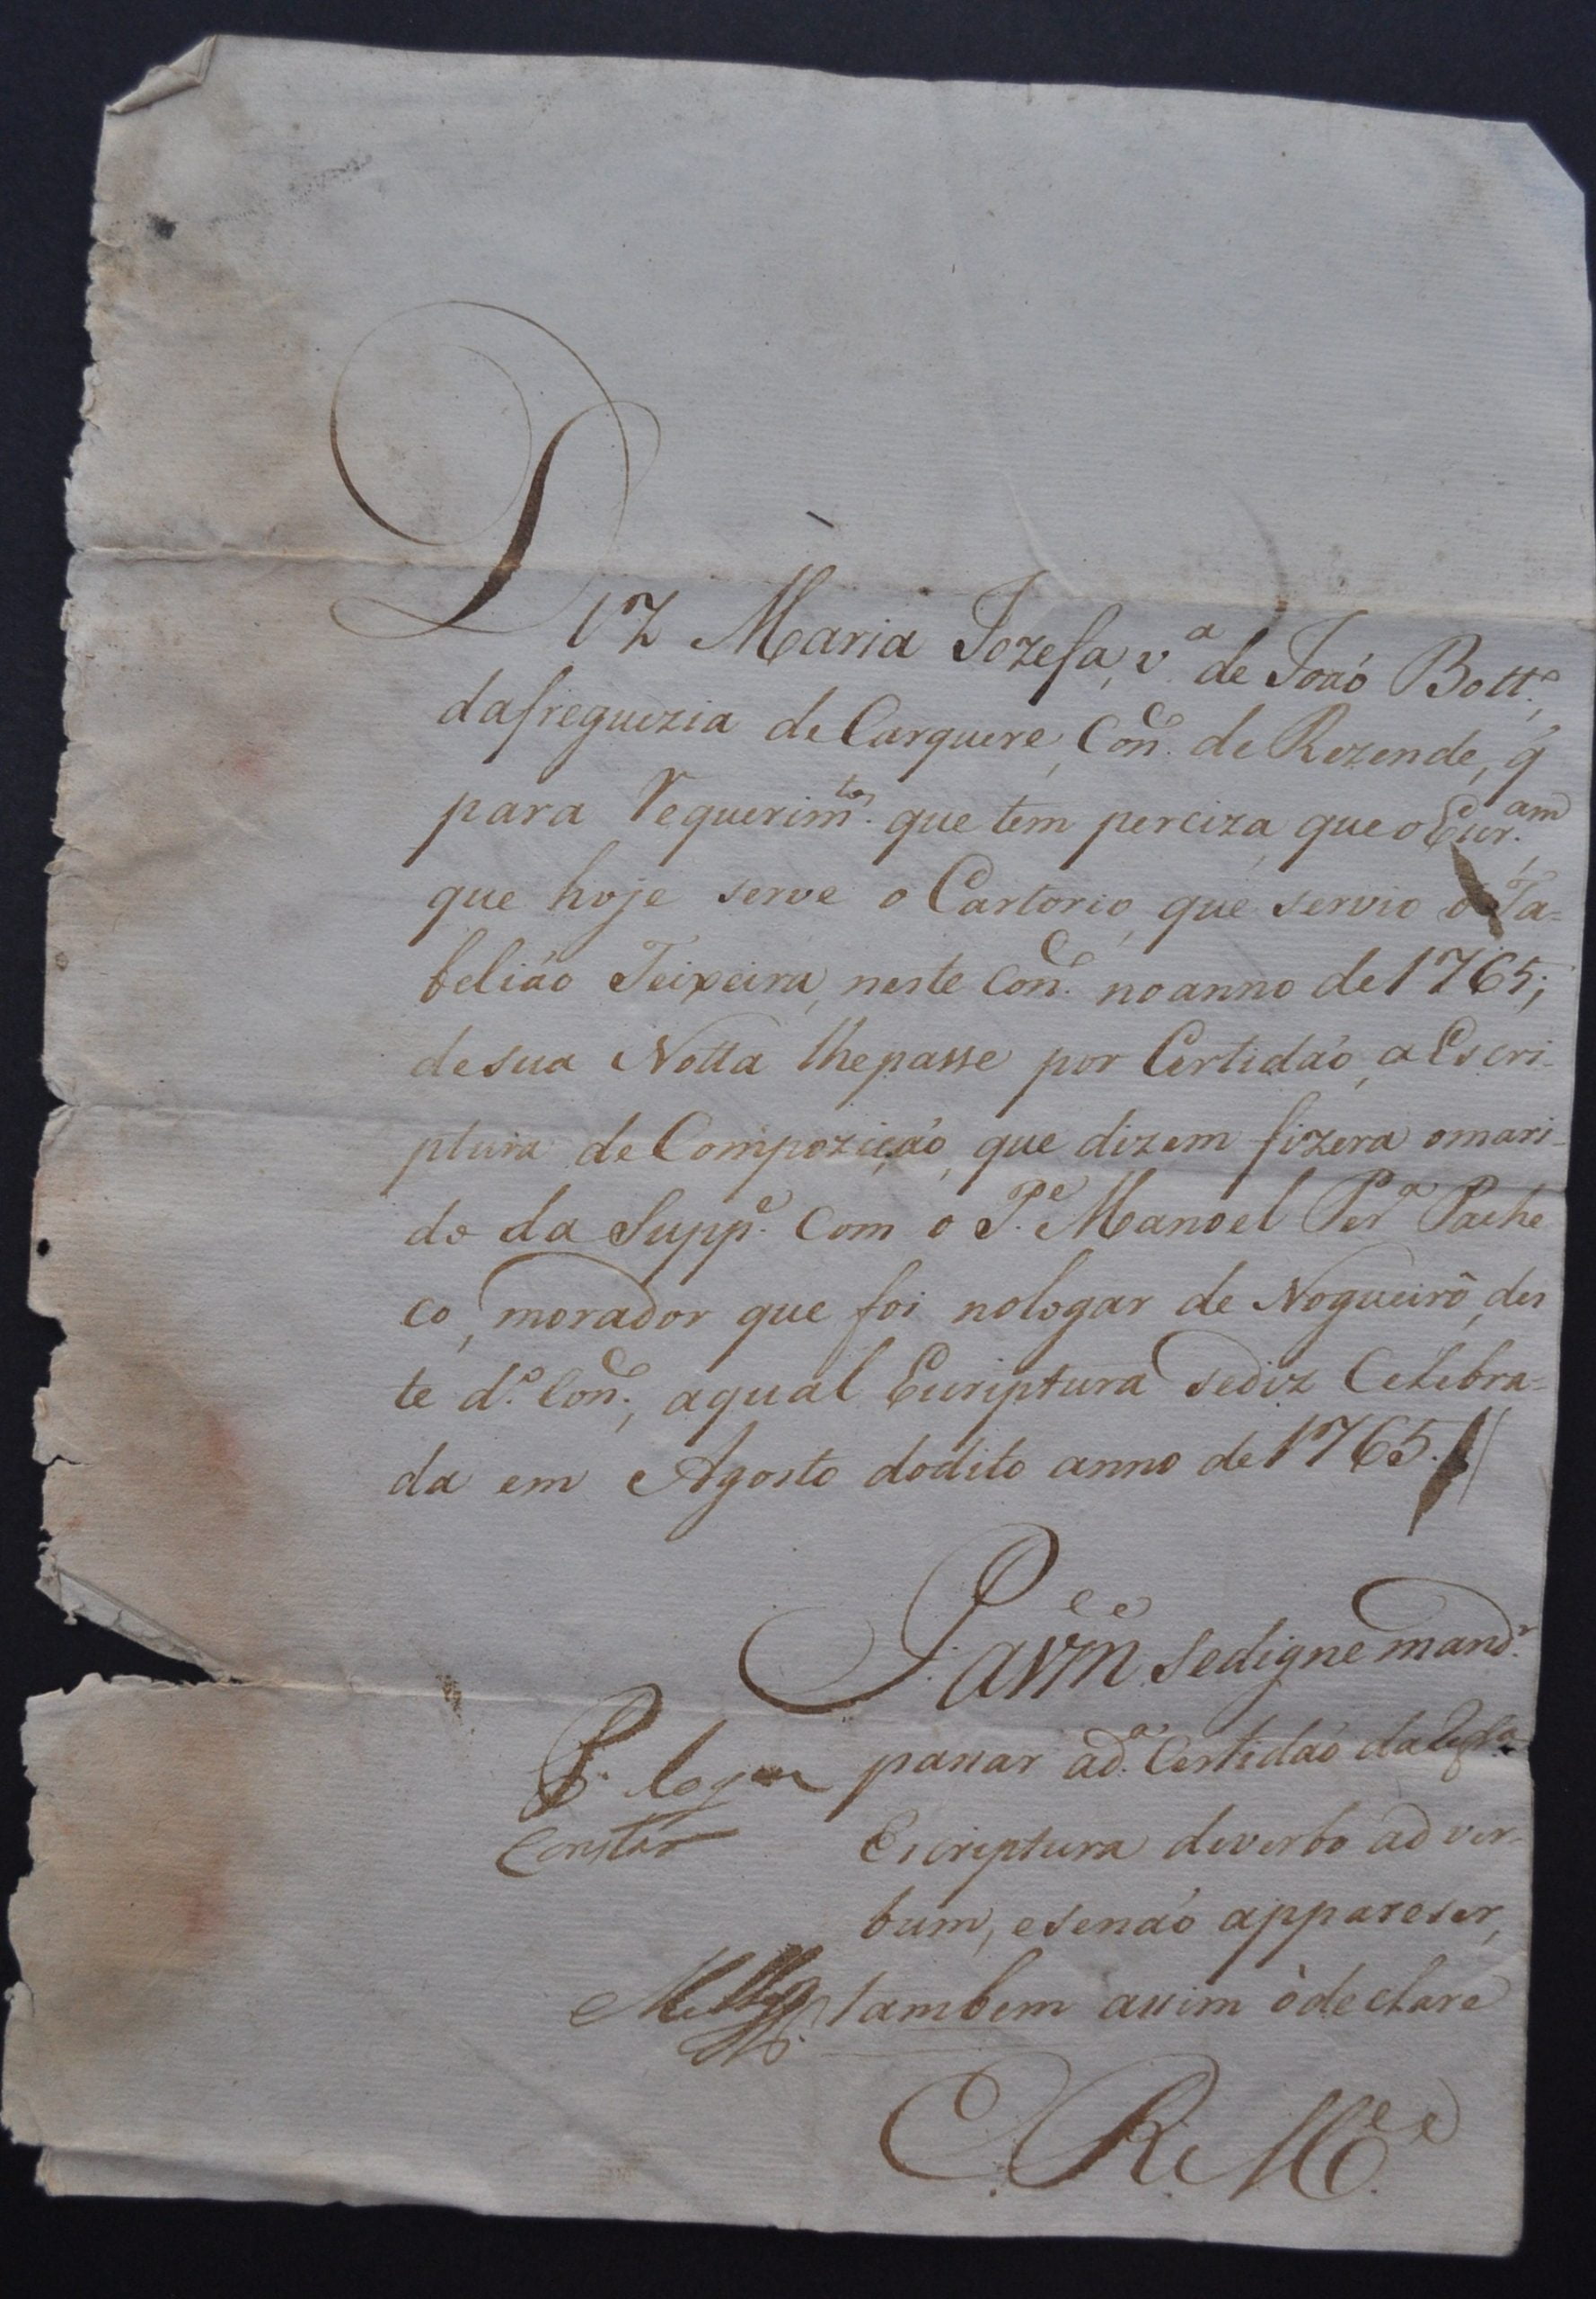 Diz Maria Jozefa, v.ª de Joaó Bott.º,
dafreguezia de Carquere, Con.º de Rezende, q̃
para requerim.tos que tem perciza, que o Escr.am
que hoje serve o Cartorio, que servio o Ta=
belião Teixeira, neste Con.º no anno de 1765;
de sua Notta lhe passe por Certidaó, a Escri-
ptura de Compoziçaó, que dizem fizera o mari-
do da Supp.e Com o P.e Manoel Per.ª Pache
co, morador que foi no logar de Nogueirô, des
te d.º Con.º, a qual Escriptura se diz Celebra=
da em Agosto do dito anno de 1765.//
P. a Vm.ce se digne mand.r
P. do q
Constar
passar a d.ª Certidaó da
Escriptura de verbo ad ver-
bum, e se naó appareser,
tambem assim ò declare
E. R. M.ce